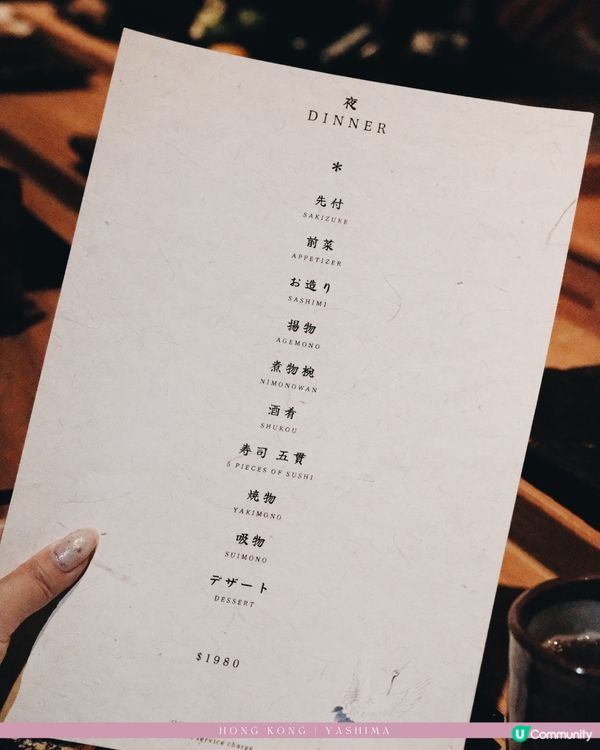 夜
DINNER
*
先付
SAKIZUKE
前菜
APPETIZER
お造り
SASHIMI
揚物
AGEMONO
煮物椀
NIMONOWAN
酒肴
SHUKOU
寿司 五貫
5 PIECES OF SUSHI
焼物
YAKIMONO
吸物
SUIMONO
デザート
DESSERT
$1980
service charge
HONG KONG | YASHIMA
U Community